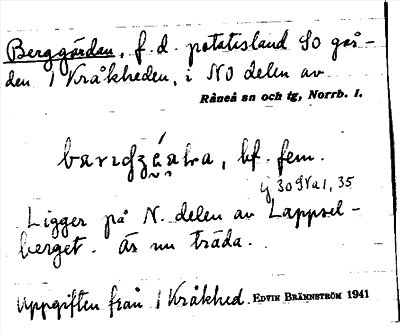 Berggärdan, f.d. potatisland SO går-
den 1 Kråkheden, i NO delen av
Råneå sn och tg, Norrb. l.
bf. fem.
Ligger på N. delen av Lappsel-
berget. Är nu träda.
Uppgiften från 1 Kråkhed. EDVIN BRÄNNSTRÖM 1941